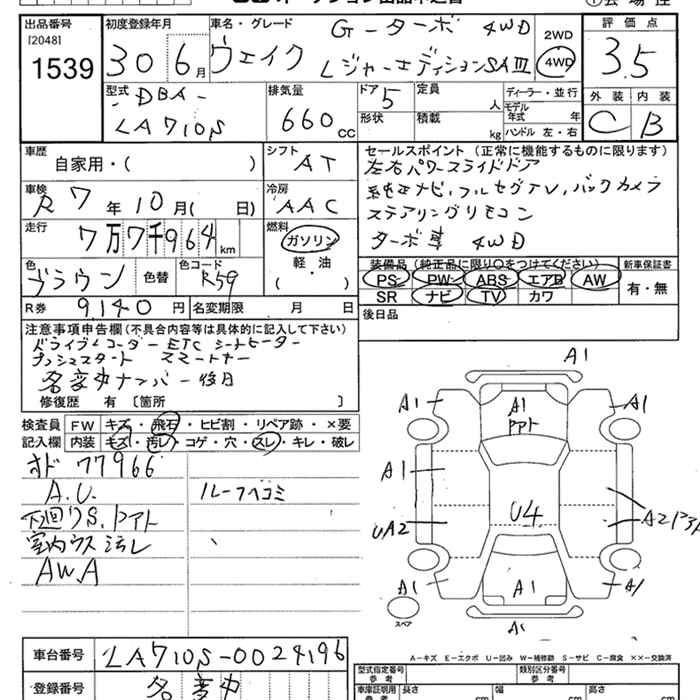 出品番号 初度登録年月 車名・グレード 2WD 評価点
[2048] Gーターボ 4WD
1539 30 6月 ウェイク Lレジャーエディション SAⅢ 4WD 3.5
型式 排気量 ドア 定員 ディーラー・並行 外装 内装
DBA- 5 人 モデル年式 年
LA710S 660 cc 形状 積載 kg ハンドル 左・右 C B
車歴 シフト セールスポイント (正常に機能するものに限ります)
自家用・( ) AT 左右パワースライドドア
車検 冷房 純正ナビ、フルセグTV、バックカメラ
R 7年 10月( 日) AAC ステアリングリモコン
走行 燃料 ターボ車 4WD
7万7千964 km ガソリン
色 色コード 軽・油 装備品 (純正品に限り○をつけてください) 新車保証書
ブラウン 色替 R59 ( ) PS PW ABS エアB AW 有・無
R券 9140円 名変期限 月 日 SR ナビ TV カワ
注意事項申告欄(不具合内容等は具体的に記入して下さい) 後日品
ドライブレコーダー ETC シートヒーター
プッシュスタート スマートキー
名変中ナンバー後日
修復歴 有〔箇所 〕
検査員 FW キズ・飛石・ヒビ割・リペア跡・×要
記入欄 内装 キズ・汚レ・コゲ・穴・スレ・キレ・破レ
オド 77966
A.U. ルーフヘコミ
下廻りS.P跡
室内ウス汚レ
AW.A
A1
A1 A1 A1
A1
U4
UA2
A1 A1 A1
スペア
A1
A−キズ E−エクボ U−凹み W−補修跡 S−サビ C−腐食 ××−交換済
車台番号 LA710S-0024196
登録番号 名変中
型式指定番号 参考 類別区分番号 参考
車庫証明用 参考 長さ cm 幅 cm 高さ cm